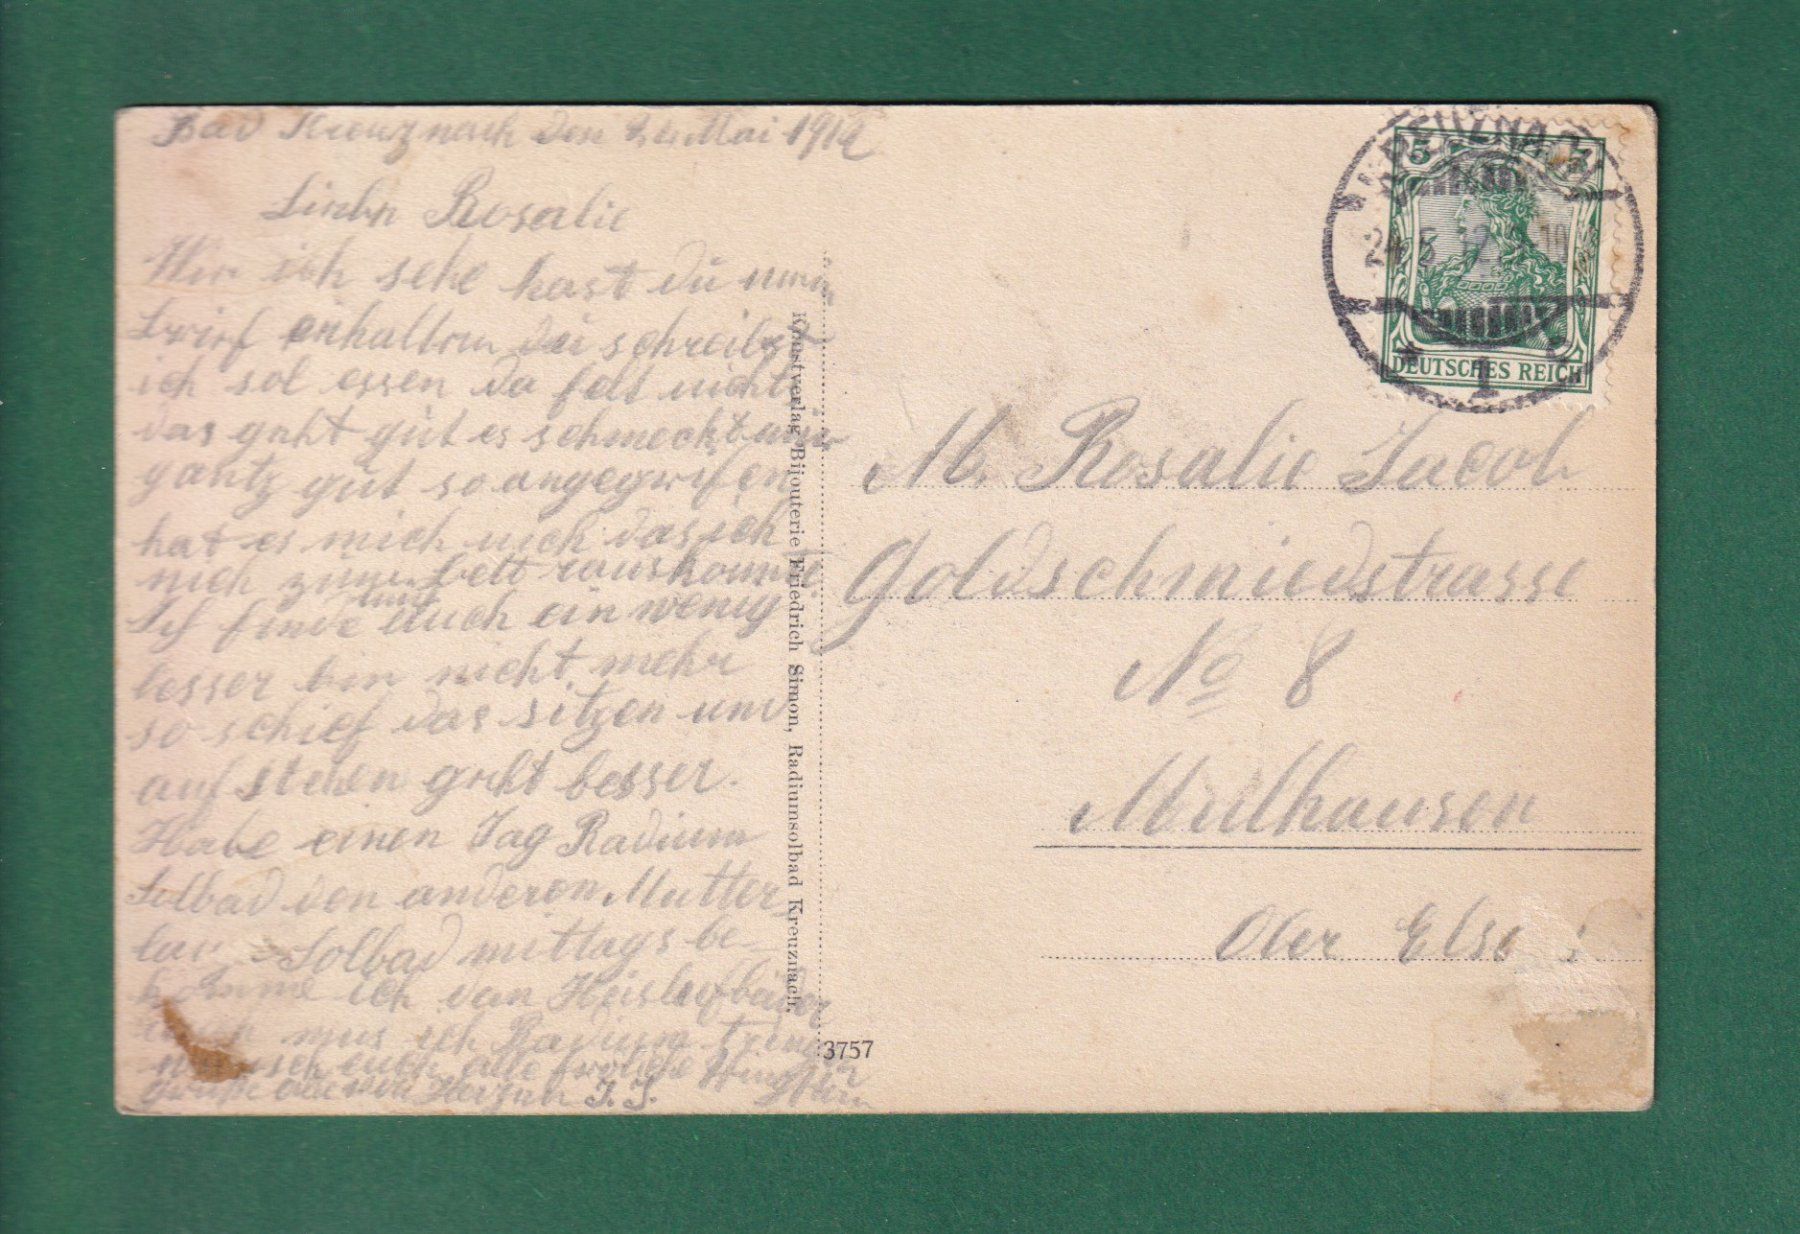 Bad Kreuznach den 24 Mai 1912
Liebe Rosalie
Wie ich sehe hast du mein
Brief erhalten du schreibst
ich sol essen da felt nichts
das geht gut es schmeckt mir
gantz gut so angegrifen
hat es mich nich das ich
nich zum bett rauskomme
Ich finde auch ein wenig
besser bin nicht mehr
so schief das sitzen und
aufstehen geht besser.
Habe einen Tag Radium
Solbad den anderen Mutter
lau Solbad mittags be-
komme ich dan
mus ich Radium
euch alle
J. J.
Kunstverlag Bijouterie Friedrich Simon, Radiumsolbad Kreuznach.
3757
KREUZNACH
24 5 12
* 1
5
DEUTSCHES REICH
M. Rosalie Jacob
Goldschmiedstrasse
No 8
Mülhausen
Ober Elsa